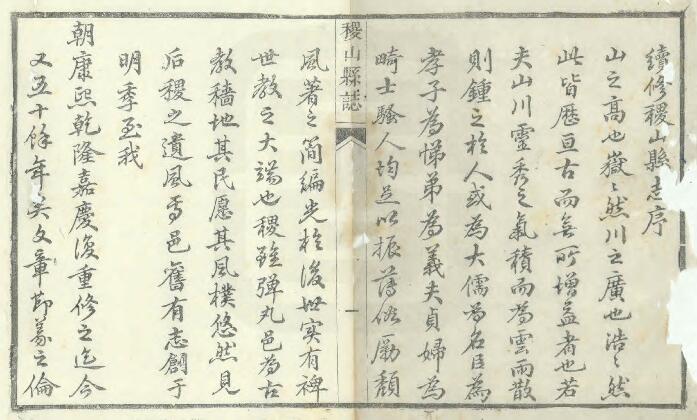 續修稷山縣志序
山之高也嶽〻然川之廣也浩〻然
此皆歷亘古而無所增益者也若
夫山川靈秀之氣積而為雲雨散
則鍾之於人或為大儒為名臣為
孝子為悌弟為義夫貞婦為
畸士騷人均足以振薄俗勵頹
稷山縣誌
一
風著之簡編光於後世實有裨
世教之大端也稷雖彈丸邑為古
教穡地其民愿其風樸悠然見
后稷之遺風焉邑舊有志創于
明季至我
朝康熙乾隆嘉慶復重修之迄今
又五十餘年矣文章節義之倫